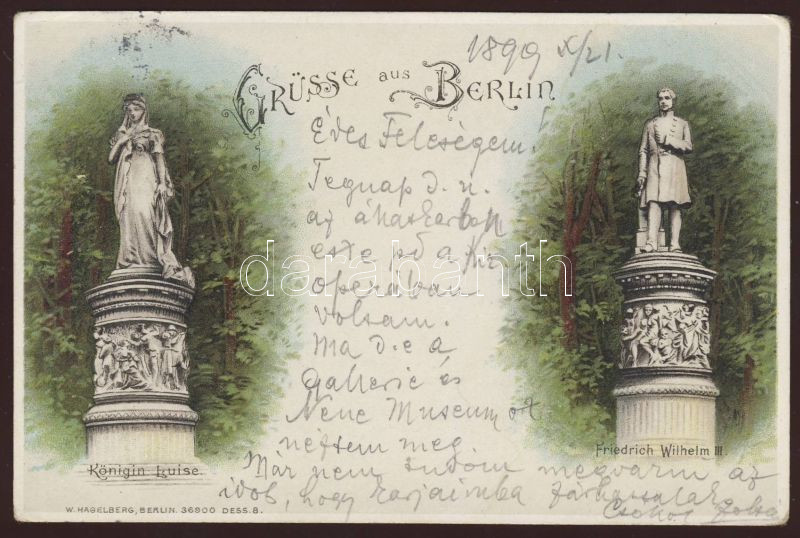 1899 X/21.
GRÜSSE aus BERLIN
Édes Feleségem!
Tegnap d. u.
az állatkertben
este pd a Kir.
operában
voltam.
Ma d. e a
gallerie és
Neue Museumot
néztem meg.
Már nem tudom megvárni az
időt, hogy karjaimba zárhassalak
Csókol Zolta
Königin Luise.
Friedrich Wilhelm III.
W. HAGELBERG, BERLIN. 36900 DESS. 8.
darabanth